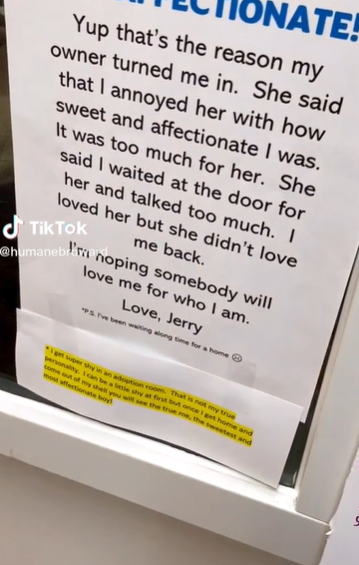 AFFECTIONATE!
Yup that's the reason my
owner turned me in. She said
that I annoyed her with how
sweet and affectionate I was.
It was too much for her. She
said I waited at the door for
her and talked too much. I
loved her but she didn't love
me back.
I'm hoping somebody will
love me for who I am.
Love, Jerry
*P.S. I've been waiting along time for a home ☹
* I get super shy in an adoption room. That is not my true
personality. I can be a little shy at first but once I get home and
come out of my shell you will see the true me, the sweetest and
most affectionate boy!
TikTok
@humanebroward